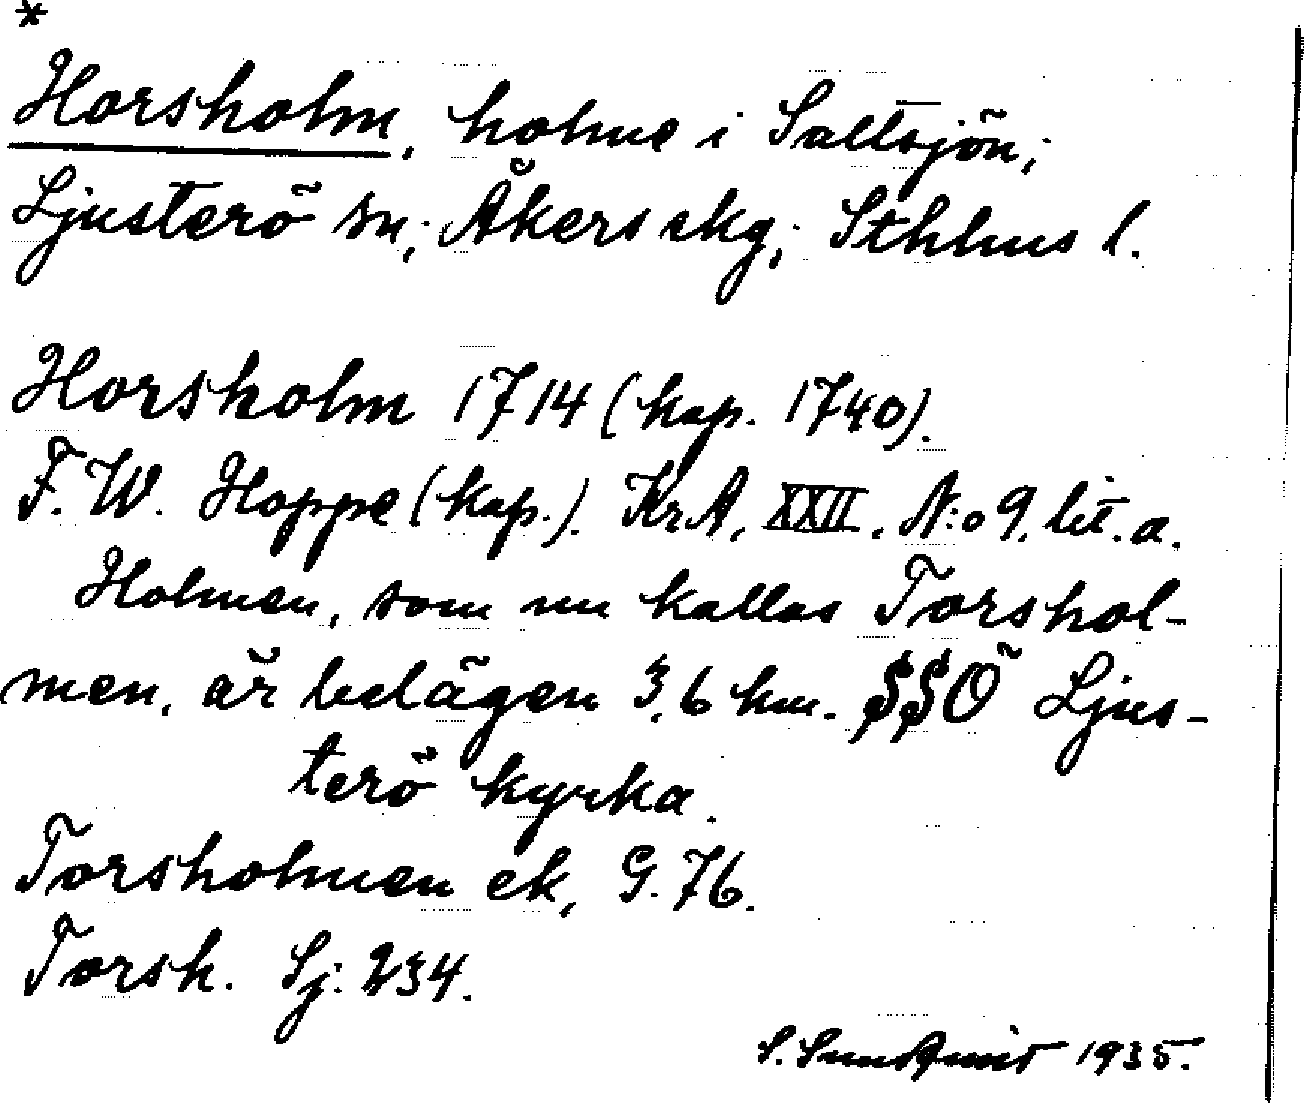 *
Horsholm, holme i Saltsjön;
Ljusterö sn; Åkers skg; Sthlms l.
Horsholm 1714 (kop. 1740).
F. W. Hoppe (kop.). KrA, XXII. N:o 9. lit. a.
Holmen, som nu kallas Torshol-
men, är belägen 3,6 km. SSÖ Ljus-
terö kyrka.
Torsholmen ek, G. 76.
Torsh. Sj: 234.
S. Sundqvist 1935.